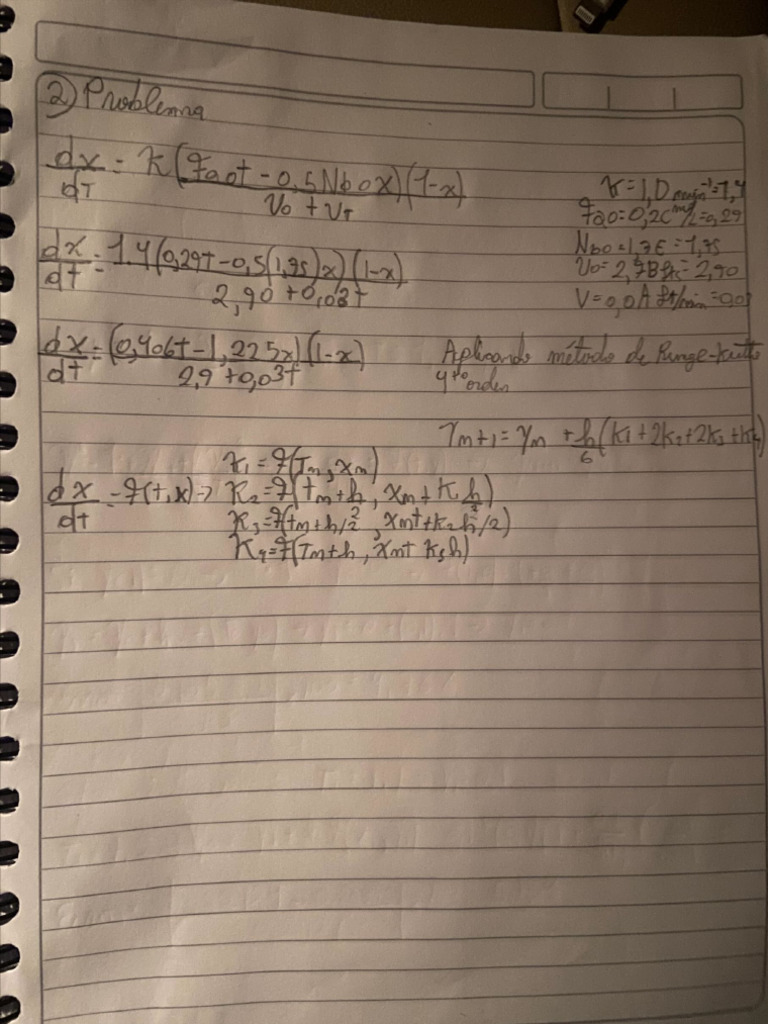 ② Problema
dx/dT = K (Fa0t - 0,5Nb0X)(1-x) / V0 + VT
K = 1,D
Fa0 = 0,2C = 0,29
Nb0 = 1,7E = 1,75
V0 = 2,9B = 2,90
V = 0,0A ft/min
dx/dt = 1.4(0,29t - 0,5(1,75)x)(1-x) / 2,90 + 0,03t
dx/dt = (0,406t - 1,225x)(1-x) / 2,9 + 0,03t
Aplicando método de Runge-Kutta
4to orden
Ym+1 = Ym + h/6 (K1 + 2K2 + 2K3 + K4)
K1 = f(Tm, Xm)
dx/dt = f(t,x) => K2 = f(tm + h/2, Xm + K h/2)
K3 = f(tm + h/2, Xm + K2 h/2)
K4 = f(Tm + h, Xm + K3h)